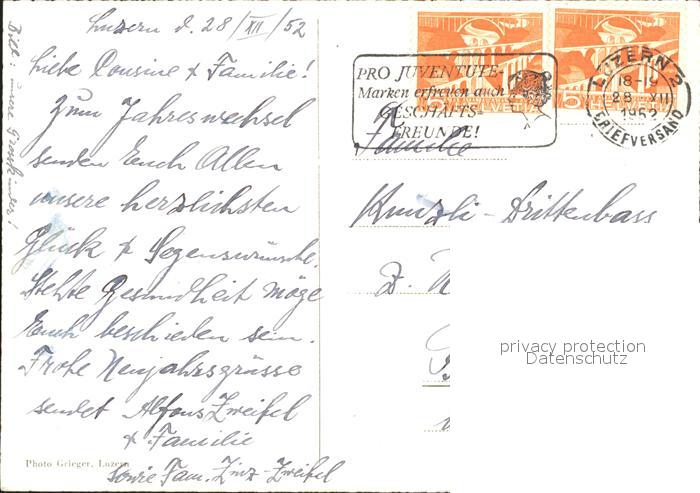 Luzern d. 28/XII/52
Liebe Cousine & Familie!
Zum Jahreswechsel
senden Euch Allen
unsere herzlichsten
Glück & Segenswünsche.
Stehts Gesundheit möge
Euch beschieden sein.
Frohe Neujahrsgrüsse
sendet Alfons Zweifel
& Familie
sowie Fam. Zinz-Zweifel
Photo Grieger, Luzern
Bild: unsere
PRO JUVENTUTE-
Marken erfreuen auch
GESCHÄFTS-
FREUNDE!
LUZERN 2
18-
28. XII
1952
BRIEFVERSAND
5
5
Familie
Kunzli-Drittenbass
Z.
privacy protection
Datenschutz